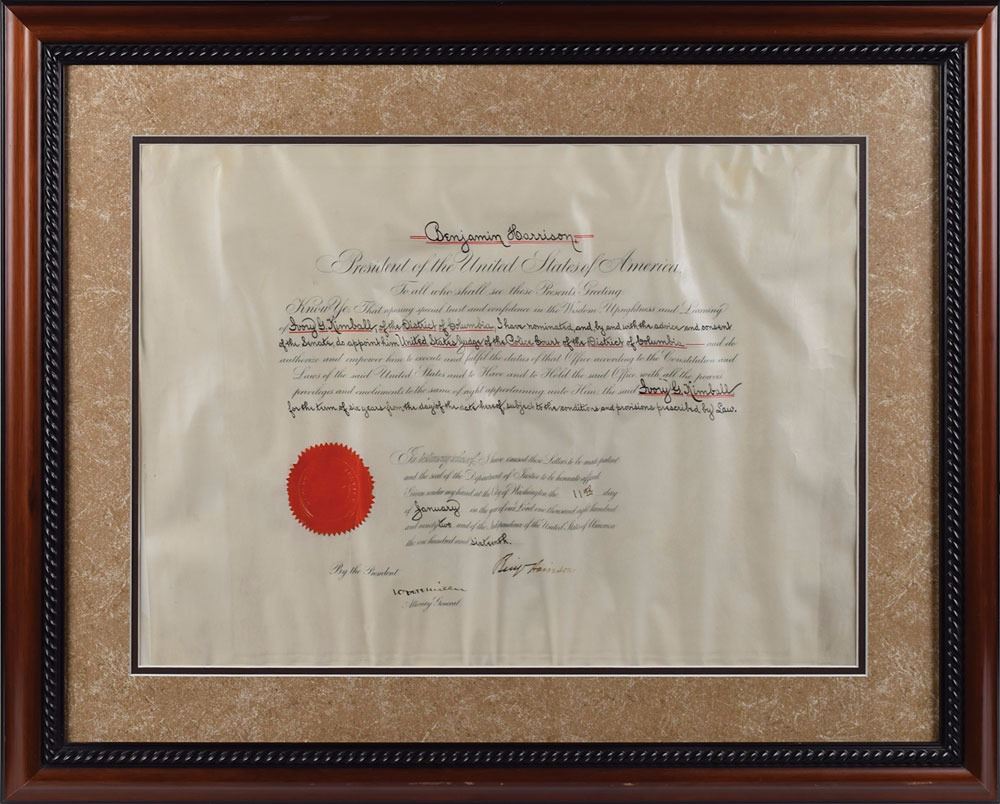 Benjamin Harrison,
President of the United States of America.
To all who shall see these Presents Greeting:
Know Ye, That reposing special trust and confidence in the Wisdom, Uprightness and Learning
of Ivory G. Kimball, of the District of Columbia, I have nominated, and, by and with the advice and consent
of the Senate, do appoint him United States Judge of the Police Court of the District of Columbia and do
authorize and empower him to execute and fulfil the duties of that Office according to the Constitution and
Laws of the said United States and to Have and to Hold the said Office with all the powers
privileges and emoluments to the same of right appertaining unto Him, the said Ivory G. Kimball
for the term of six years from the day of the date hereof, subject to the conditions and provisions prescribed by Law.
In testimony whereof I have caused these Letters to be made patent
and the seal of the Department of Justice to be hereunto affixed.
Given under my hand at the City of Washington the 11th day
of January in the year of our Lord one thousand eight hundred
and ninety two and of the Independence of the United States of America
the one hundred and sixteenth.
By the President: Benj Harrison
Attorney General